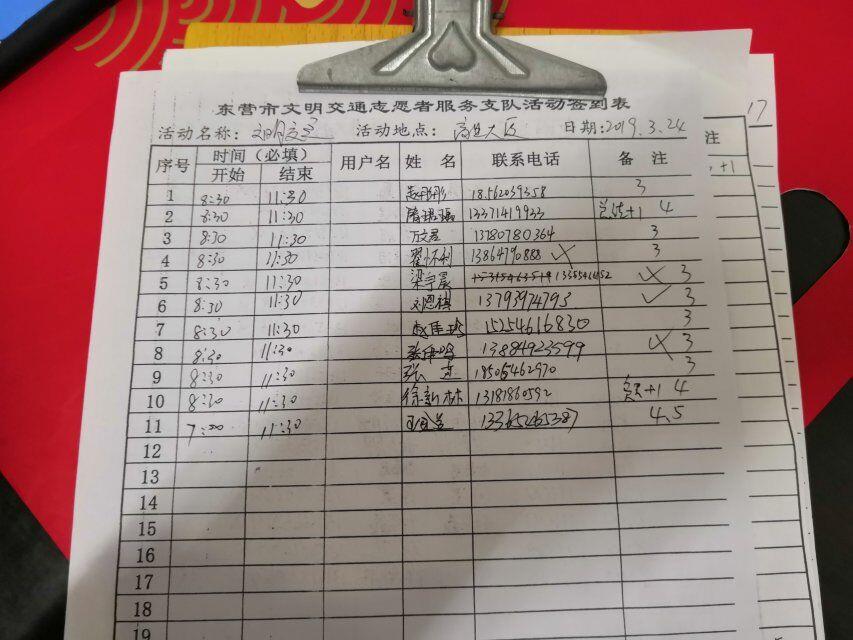 东营市文明交通志愿者服务支队活动签到表
活动名称: 活动地点: 日期:2019.3.24
序号 时间（必填） 用户名 姓 名 联系电话 备 注
开始 结束
1 8:30 11:30 18562039358 3
2 8:30 11:30 13371419933 +1 4
3 8:30 11:30 13780780364 3
4 8:30 11:30 翟怀利 13864790888 × 3
5 8:30 11:30 梁宇晨 × 3
6 8:30 11:30 刘恩祺 13793974793 ✓ 3
7 8:30 11:30 15254616830 3
8 8:30 11:30 13884923599 × 3
9 8:30 11:30 18505462970 3
10 8:30 11:30 徐新林 13181860592 +1 4
11 7:00 11:30 13365465387 4.5
12
13
14
15
16
17
18
19
注
+1
17